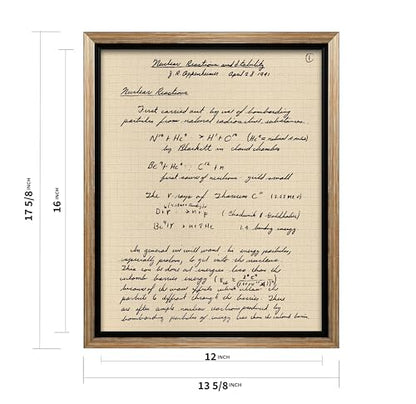 Nuclear Reactions and Stability
①
J. R. Oppenheimer April 28 1941
Nuclear Reactions
First carried out by use of bombarding
particles from natural radioactive substances.
by Blackett in cloud chamber
first source of neutrons - yield small
The γ rays of Thorium C"
D+γ → n+p (Chadwick & Goldhaber)
binding energy
In general we will want to energy particles,
especially protons, to get into the nucleus.
This can be done at energies less than the
coulomb barrier energy
because of the wave effects which allow the
particle to diffract through the barrier. There
are often ample nuclear reactions produced by
bombarding particles of energy less than the coulomb barrier.
17 5/8 INCH
16 INCH
12 INCH
13 5/8 INCH